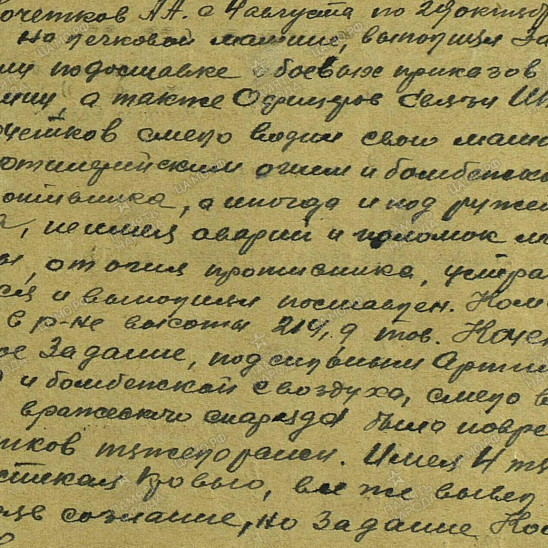 очетков А.А. с 4 августа по 29 октябр
на легковой машине, выполнял за
ни по доставке боевых приказов
ии, а также Офицеров связи Шт
очетков смело водил свою маши
ртиллерийским огнем и бомбежко
отивника, а иногда и под ружей
а, не имея аварий и поломок м
ы, от огня противника, устра
ся и выполнял поставлен.
в р-не высоты 214,9 тов. Коче
ое Задание, под сильным Арти
и бомбежкой с воздуха, смело в
вражеского снаряда была повре
тков тяжело ранен. Имея 4 тя
стекая Кровью, все же вывел
яв сознание, но Задание Ко